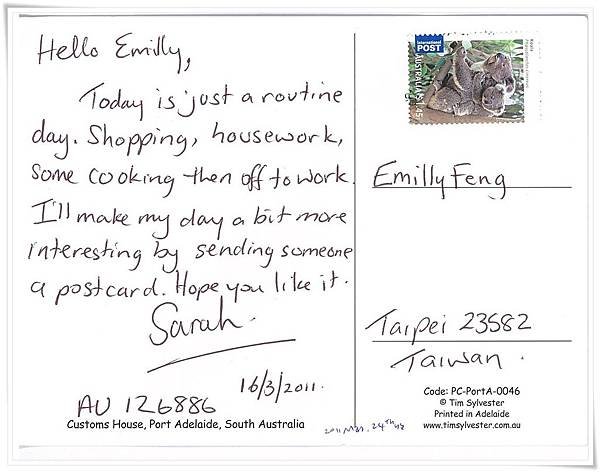 Hello Emilly,
Today is just a routine
day. Shopping, housework,
some cooking then off to work.
I'll make my day a bit more
interesting by sending someone
a postcard. Hope you like it.
Sarah.
16/3/2011.
AU 126886
Customs House, Port Adelaide, South Australia
International
POST
AUSTRALIA
Emilly Feng
Taipei 23582
Taiwan.
Code: PC-PortA-0046
© Tim Sylvester
Printed in Adelaide
www.timsylvester.com.au
2011 Mar. 24th